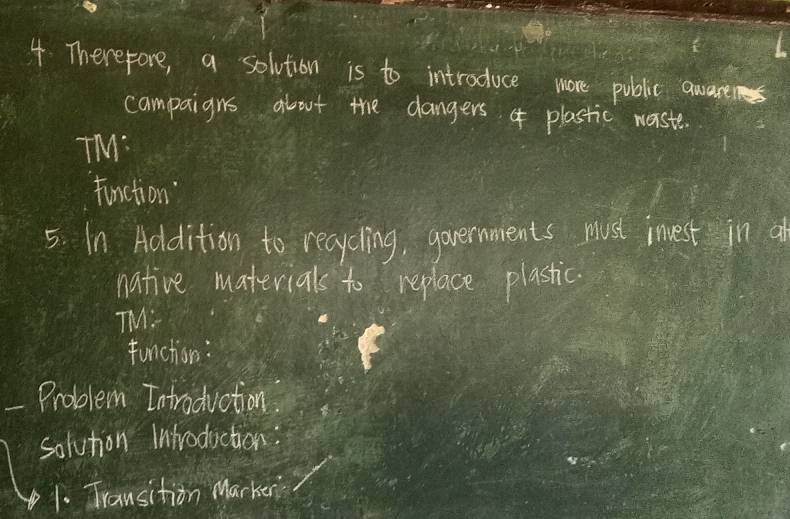 4 Therefore, a solution is to introduce more public awareness
campaigns about the dangers of plastic waste.
TM:
Function:
5. In Addition to recycling, governments must invest in alt
native materials to replace plastic.
TM:
Function:
- Problem Introduction:
Solution Introduction:
1. Transition Marker: